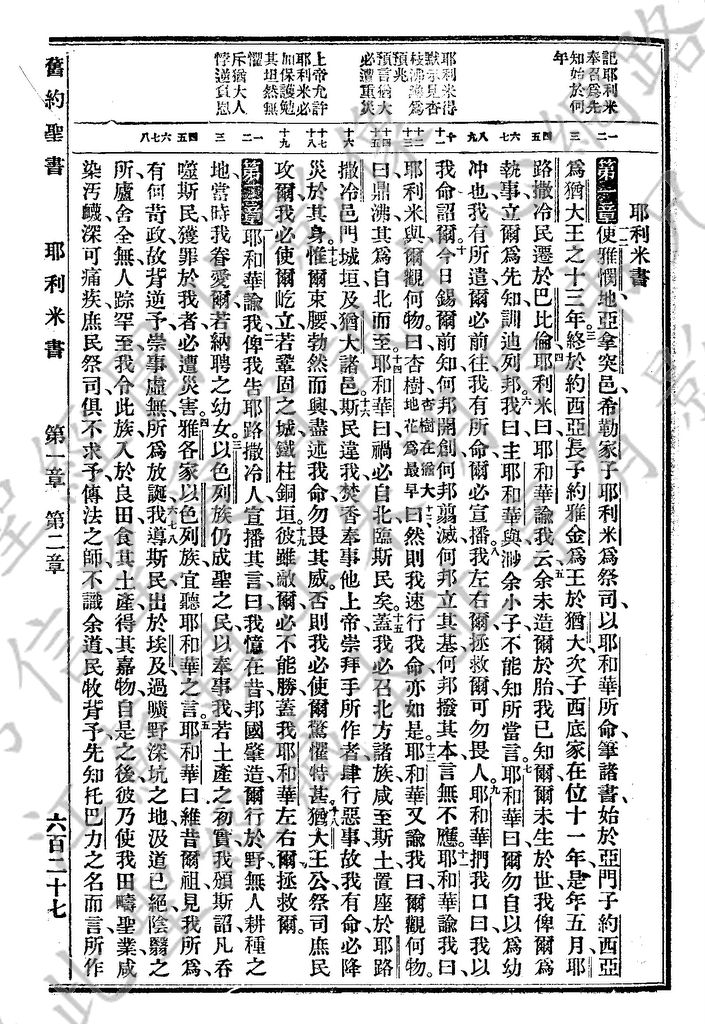 耶利米書
記耶利米
奉召爲先
知始於何
年
耶利米得
默示見杏
枝沸鑊爲
預兆
預言猶大
必遭重災
上帝允許
耶利米必
加保護勉
其坦然無
懼
斥猶大人
悖逆負恩
第一章使雅憫地亞拿突邑希勒家子耶利米爲祭司以耶和華所命筆諸書始於亞門子約西亞
爲猶大王之十三年終於約西亞長子約雅金爲王於猶大次子西底家在位十一年是年五月耶
路撒冷民遷於巴比倫耶利米曰耶和華諭我云余未造爾於胎我已知爾爾未生於世我俾爾爲
執事立爾爲先知訓迪列邦我曰主耶和華與渺余小子不能知所當言耶和華曰爾勿自以爲幼
冲也我有所遣爾必前往我有所命爾必宣播我左右爾拯救爾可勿畏人耶和華捫我口曰我以
我命詔爾今日錫爾前知何邦開創何邦翦滅何邦立其基何邦撥其本言無不應耶和華諭我曰
耶利米與爾觀何物曰杏樹杏樹在猶大地花爲最早曰然則我速行我命亦如是耶和華又諭我曰爾觀何物
曰鼎沸其爲自北而至耶和華曰禍必自北臨斯民矣蓋我必召北方諸族咸至斯土置座於耶路
撒冷邑門城垣及猶大諸邑斯民違我焚香奉事他上帝崇拜手所作者肆行惡事故我有命必降
災於其身惟爾束腰勃然而興盡述我命勿畏其威否則我必使爾驚懼特甚猶大王公祭司庶民
攻爾我必使爾屹立若鞏固之城鐵柱銅垣彼雖敵爾必不能勝蓋我耶和華左右爾拯救爾
第二章耶和華諭我俾我告耶路撒冷人宣播其言曰我憶在昔邦國肇造爾行於野無人耕種之
地當時我眷愛爾若納聘之幼女以色列族仍成聖之民以奉事我若土產之初實我頒斯詔凡吞
噬斯民獲罪於我者必遭災害雅各家以色列族宜聽耶和華之言耶和華曰維昔爾祖見我所爲
有何苛政故背逆予崇事虛無所爲放誕我導斯民出於埃及過曠野深坑之地汲道已絕陰翳之
所廬舍全無人踪罕至我令此族入於良田食其土產得其嘉物自是之後彼乃使我田疇聖業咸
染汚衊深可痛疾庶民祭司俱不求予傳法之師不識余道民牧背予先知托巴力之名而言所作
舊約聖書 耶利米書 第一章 第二章 六百二十七